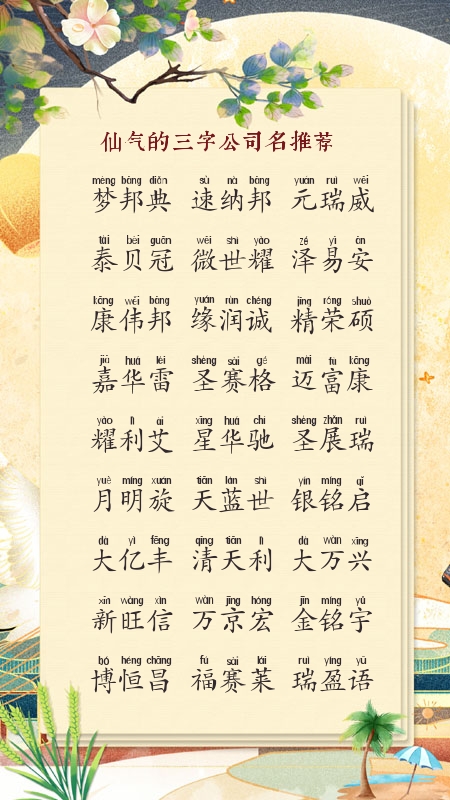 仙气的三字公司名推荐
mèng bāng diǎn sù nà bāng yuán ruì wēi
梦邦典 速纳邦 元瑞威
tài bèi guān wēi shì yào zé yì ān
泰贝冠 微世耀 泽易安
kāng wěi bāng yuán rùn chéng jīng róng shuò
康伟邦 缘润诚 精荣硕
jiā huá léi shèng sài gé mài fù kāng
嘉华雷 圣赛格 迈富康
yào lì ài xīng huá chí shèng zhǎn ruì
耀利艾 星华驰 圣展瑞
yuè míng xuán tiān lán shì yín míng qǐ
月明旋 天蓝世 银铭启
dà yì fēng qīng tiān lì dà wàn xīng
大亿丰 清天利 大万兴
xīn wàng xìn wàn jīng hóng jīn míng yǔ
新旺信 万京宏 金铭宇
bó héng chāng fú sài lái ruì yíng yǔ
博恒昌 福赛莱 瑞盈语